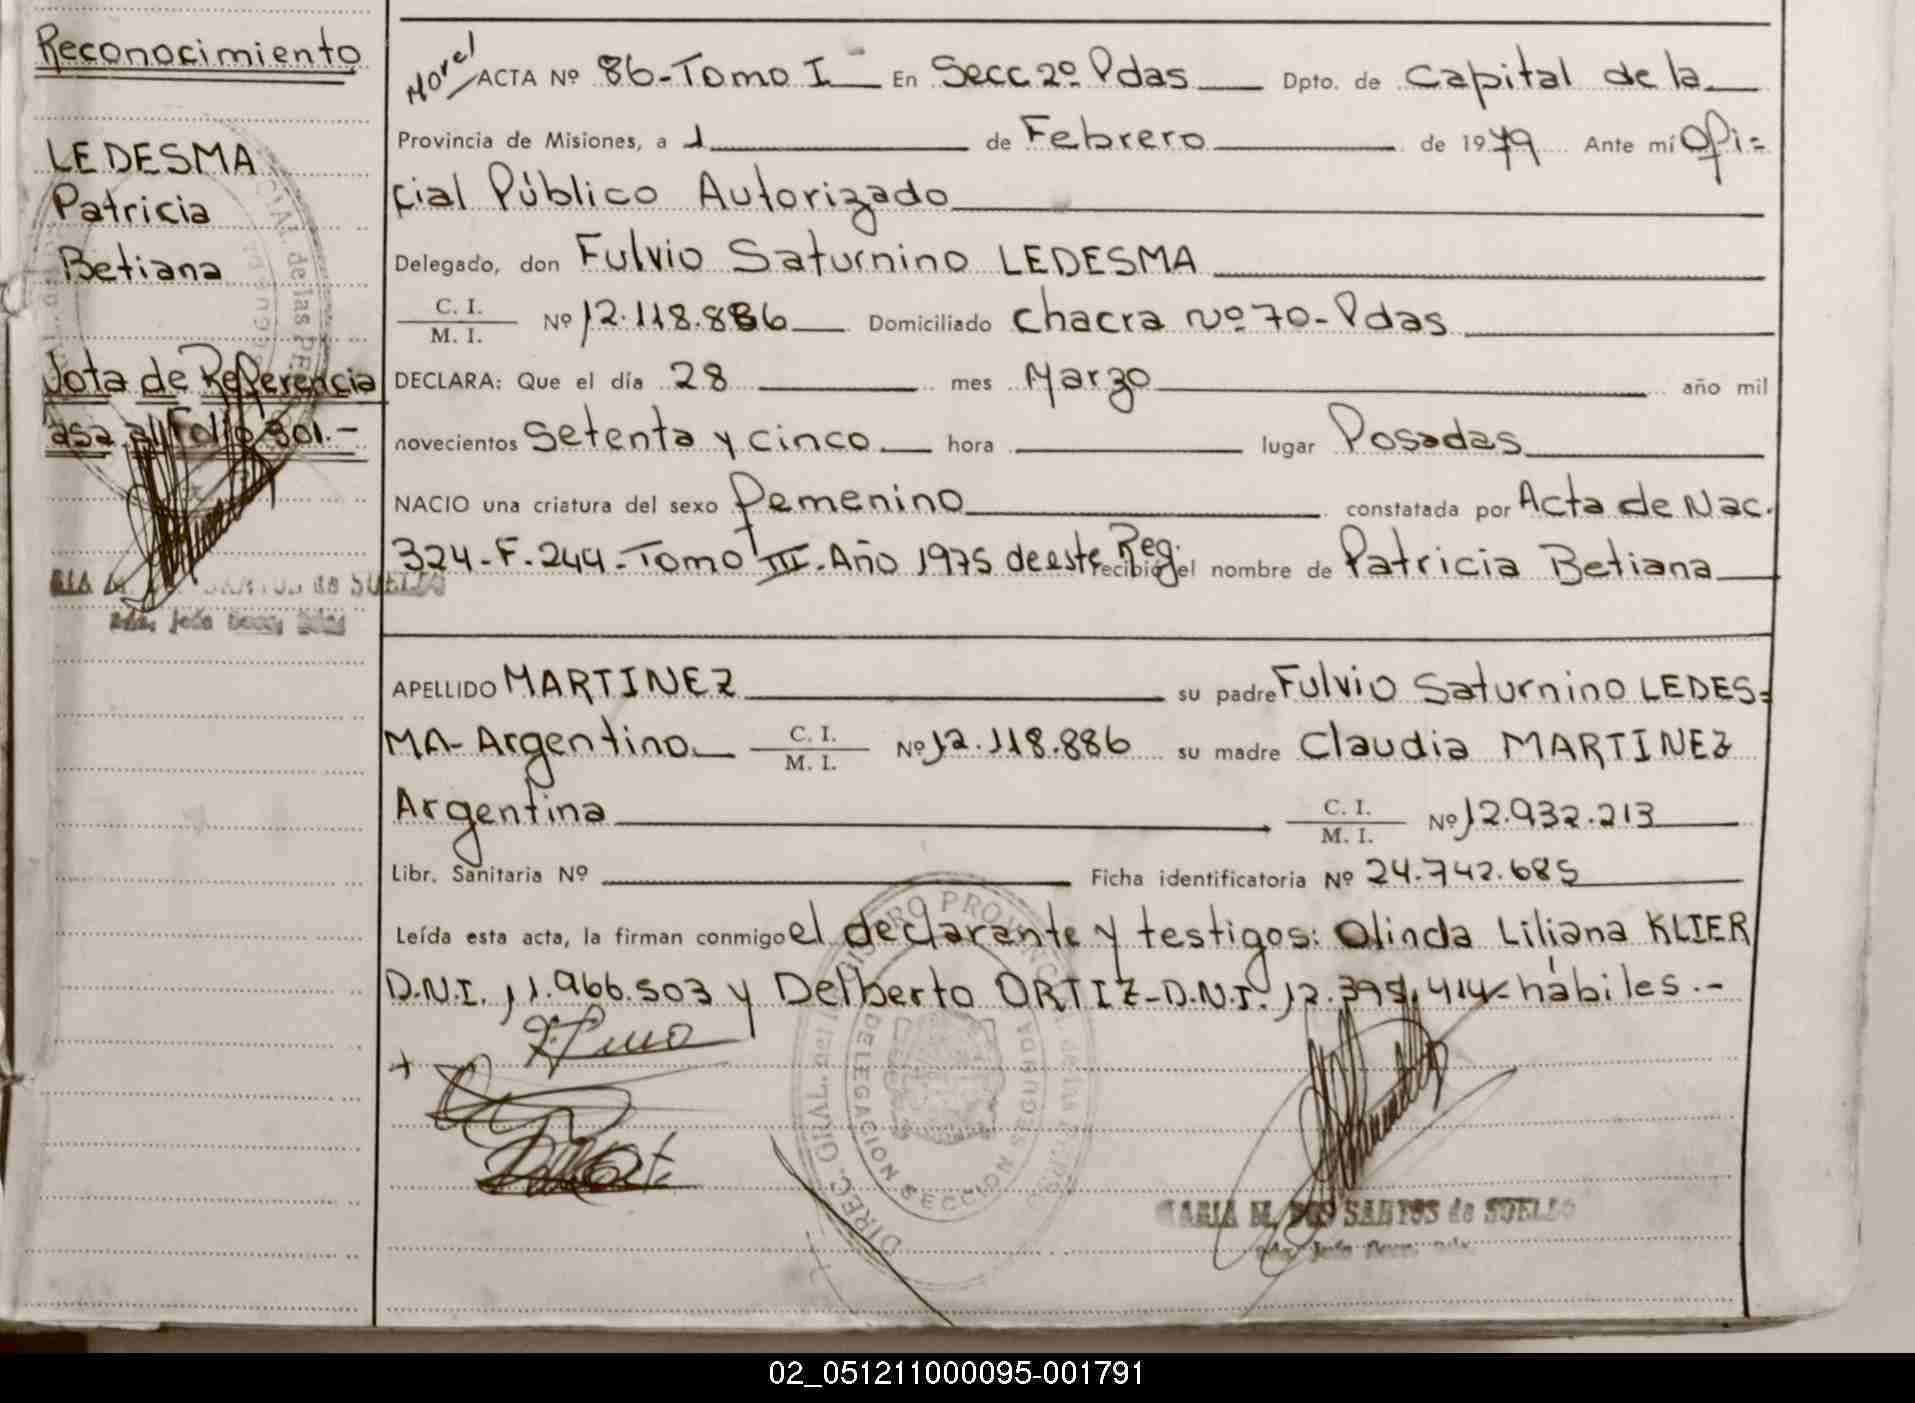 Reconocimiento
LEDESMA
Patricia
Betiana
Nota de Referencia
pasa al Folio 301.-
Morel
ACTA Nº 86-Tomo I En Secc 2º Pdas Dpto. de Capital de la
Provincia de Misiones, a 1 de Febrero de 1979 Ante mí Ofi=
cial Público Autorizado
Delegado, don Fulvio Saturnino LEDESMA
C. I.
M. I. Nº 12.118.886 Domiciliado Chacra Nº 70-Pdas
DECLARA: Que el día 28 mes Marzo año mil
novecientos Setenta y cinco hora lugar Posadas
NACIO una criatura del sexo femenino constatada por Acta de Nac.
324-F.244-Tomo III-Año 1975 de este Reg. recibió el nombre de Patricia Betiana
APELLIDO MARTINEZ su padre Fulvio Saturnino LEDES=
MA-Argentino C. I.
M. I. Nº 12.118.886 su madre Claudia MARTINEZ
Argentina C. I.
M. I. Nº 12.932.213
Libr. Sanitaria Nº Ficha identificatoria Nº 24.742.685
Leída esta acta, la firman conmigo el declarante y testigos: Olinda Liliana KLIER
D.N.I. 11.966.503 y Delberto ORTIZ-D.N.I. 12.395.414-hábiles.-
DIREC. GRAL. del REGISTRO PROVINCIAL de las PERS
DELEGACION SECCION
MARIA M. DOS SANTOS de SUELDO
02_051211000095-001791